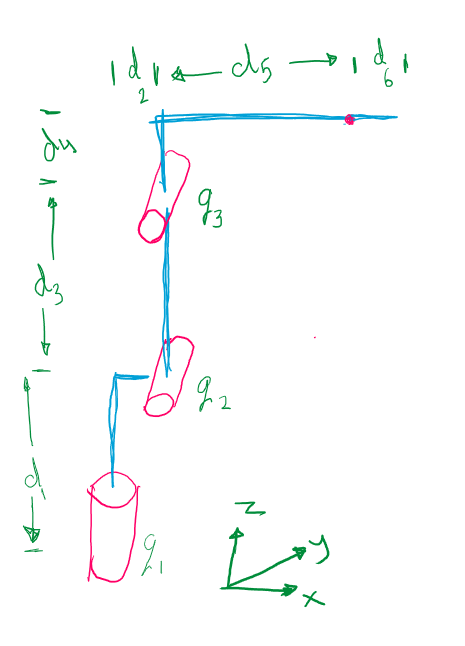 d2 d5 d6
d4
q3
d3
q2
d1
q1
z
y
x